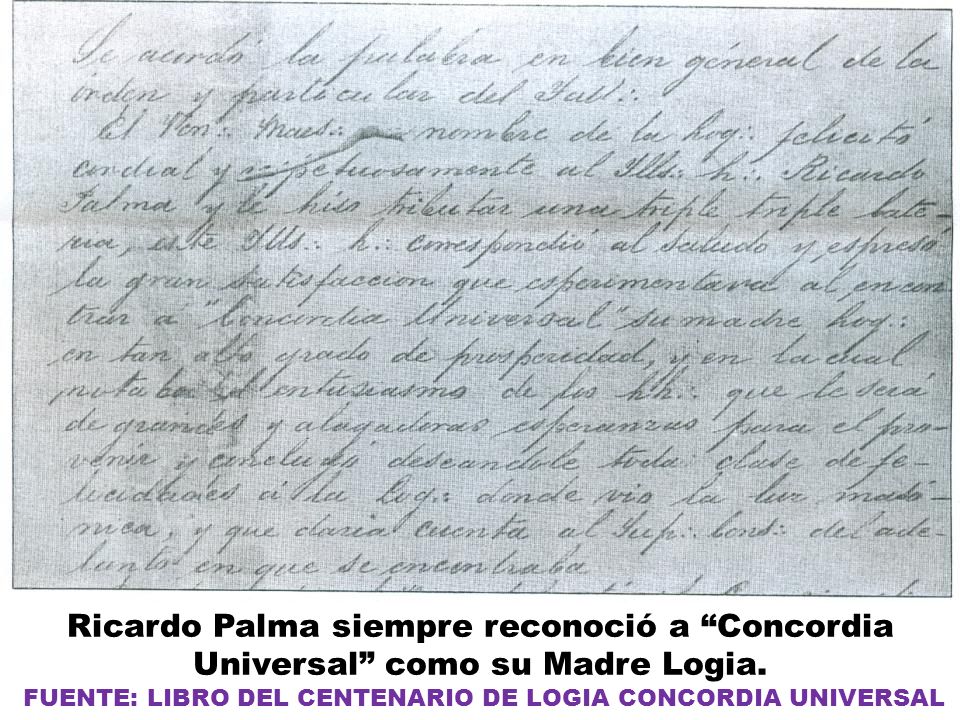 Se acordó la palabra en bien géneral de la
órden y particular del Tall∴
El Ven∴ Maes∴ nombre de la log∴ felicitó
cordial y respetuosamente al Ills∴ h∴ Ricardo
Palma y le hiso tributar una triple triple bate-
ria, este Ills∴ h∴ correspondió al saludo y espresó
la gran satisfaccion que esperimentava al encon-
trar a "Concordia Universal" su madre log∴
en tan alto grado de prosperidad, y en la cual
notaba el entusiasmo de los hh∴ que le será
de grandes y alagadoras esperanzas para el por-
venir y concluyó deseandole toda clase de fe-
licidades á la Log∴ donde vio la luz masó-
nica, y que daria cuenta al Sup∴ Cons∴ del ade-
lanto en que se encontraba
Ricardo Palma siempre reconoció a “Concordia
Universal” como su Madre Logia.
FUENTE: LIBRO DEL CENTENARIO DE LOGIA CONCORDIA UNIVERSAL